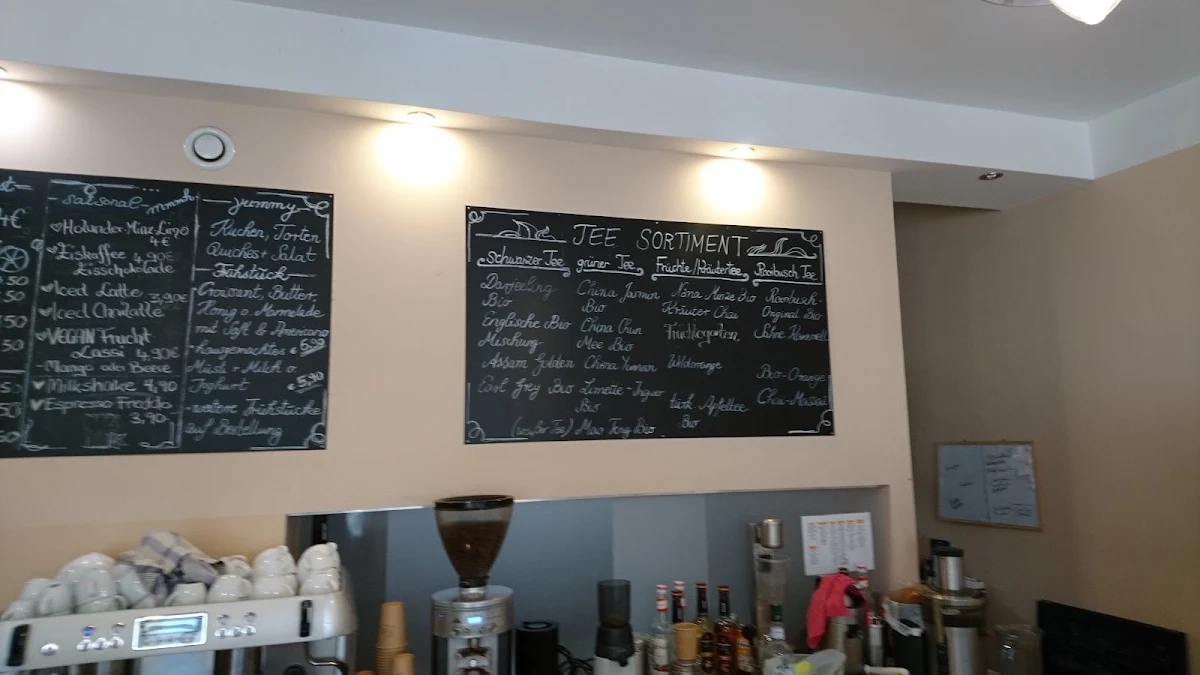 4€
50
50
50
50
saisonal mmmh
Holunder-Minz-Limo
4€
Eiskaffee 4,90€
Eisschokolade
Iced Latte 3,90€
Iced Chailatte
VEGAN Frucht
Lassi 4,90€
Mango oder Beere
Milkshake 4,90
Espresso Freddo
3,90.-
yummy
Kuchen, Torten
Quiches + Salat
Frühstück
Croissant, Butter,
Honig o. Marmelade
mit Saft & Americano
€ 6,90
hausgemachtes
Müsli + Milch o.
Joghurt € 5,90
weitere Frühstücke
auf Bestellung
TEE SORTIMENT
Schwarzer Tee
Darjeeling
Bio
Englische Bio
Mischung
Assam Golden
Earl Grey Bio
grüner Tee
China Jasmin
Bio
China Chun
Mee Bio
China Yunnan
Limette-Ingwer
Bio
(weißer Tee) Mao Feng Bio
Früchte/Kräutertee
Nana Minze Bio
Kräuter Chai
Früchtegarten
Wildorange
türk. Apfeltee
Bio
Rooibusch Tee
Rooibusch-
Original Bio
Sahne Karamell
Bio-Orange
Chai-Massai